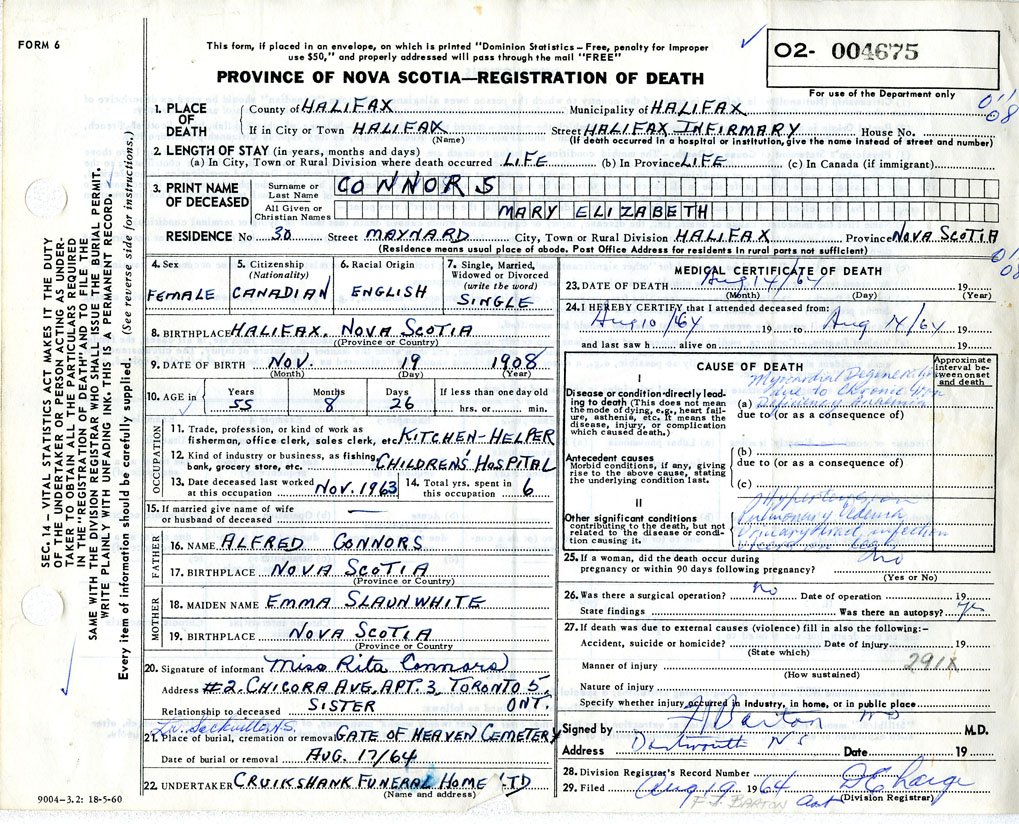 FORM 6
This form, if placed in an envelope, on which is printed "Dominion Statistics – Free, penalty for improper
use $50," and properly addressed will pass through the mail "FREE"
02- 004675
For use of the Department only
PROVINCE OF NOVA SCOTIA—REGISTRATION OF DEATH
SEC. 14 – VITAL STATISTICS ACT MAKES IT THE DUTY
OF THE UNDERTAKER OR PERSON ACTING AS UNDER-
TAKER TO OBTAIN ALL THE PARTICULARS REQUIRED
IN THE "REGISTRATION OF DEATH" AND TO FILE THE
SAME WITH THE DIVISION REGISTRAR WHO SHALL ISSUE THE BURIAL PERMIT.
WRITE PLAINLY WITH UNFADING INK. THIS IS A PERMANENT RECORD.
Every item of information should be carefully supplied. (See reverse side for instructions.)
1. PLACE OF DEATH
County of HALIFAX Municipality of HALIFAX
If in City or Town HALIFAX Street HALIFAX INFIRMARY House No.
(Name) (If death occurred in a hospital or institution, give the name instead of street and number)
2. LENGTH OF STAY (in years, months and days)
(a) In City, Town or Rural Division where death occurred LIFE (b) In Province LIFE (c) In Canada (if immigrant)
3. PRINT NAME OF DECEASED
Surname or Last Name CONNORS
All Given or Christian Names MARY ELIZABETH
RESIDENCE No 30 Street MAYNARD City, Town or Rural Division HALIFAX Province NOVA SCOTIA
(Residence means usual place of abode. Post Office Address for residents in rural parts not sufficient)
4. Sex FEMALE
5. Citizenship (Nationality) CANADIAN
6. Racial Origin ENGLISH
7. Single, Married, Widowed or Divorced (write the word) SINGLE
8. BIRTHPLACE HALIFAX, NOVA SCOTIA
(Province or Country)
9. DATE OF BIRTH NOV. 19 1908
(Month) (Day) (Year)
10. AGE in Years 55 Months 8 Days 26 If less than one day old hrs. or min.
OCCUPATION
11. Trade, profession, or kind of work as
fisherman, office clerk, sales clerk, etc. KITCHEN-HELPER
12. Kind of industry or business, as fishing,
bank, grocery store, etc. CHILDRENS' HOSPITAL
13. Date deceased last worked at this occupation NOV. 1963 14. Total yrs. spent in this occupation 6
15. If married give name of wife
or husband of deceased —
FATHER
16. NAME ALFRED CONNORS
17. BIRTHPLACE NOVA SCOTIA
(Province or Country)
MOTHER
18. MAIDEN NAME EMMA SLAUNWHITE
19. BIRTHPLACE NOVA SCOTIA
(Province or Country)
20. Signature of informant Miss Rita Connors
Address #2 CHICORA AVE, APT. 3, TORONTO 5,
ONT.
Relationship to deceased SISTER
Sackville N.S.
21. Place of burial, cremation or removal GATE OF HEAVEN CEMETERY
Date of burial or removal AUG. 17/64
22. UNDERTAKER CRUIKSHANK FUNERAL HOME LTD
(Name and address)
9004-3.2: 18-5-60
MEDICAL CERTIFICATE OF DEATH
23. DATE OF DEATH Aug 14/64 19
(Month) (Day) (Year)
24. I HEREBY CERTIFY that I attended deceased from:
Aug 10/64 19 to Aug 14/64 19
and last saw h alive on 19
CAUSE OF DEATH
Approximate interval between onset and death
I
Disease or condition directly lead-
ing to death (This does not mean
the mode of dying, e.g., heart fail-
ure, asthenia, etc. It means the
disease, injury, or complication
which caused death.)
Myocardial Degeneration
due to Chronic Iron
(a) Deficiency
due to (or as a consequence of)
Antecedent causes
Morbid conditions, if any, giving
rise to the above cause, stating
the underlying condition last.
(b)
due to (or as a consequence of)
(c)
II
Other significant conditions
contributing to the death, but not
related to the disease or condi-
tion causing it.
Hypertension
Pulmonary Oedema
Urinary tract infection
25. If a woman, did the death occur during
pregnancy or within 90 days following pregnancy? no
(Yes or No)
26. Was there a surgical operation? No Date of operation 19
State findings Was there an autopsy?
27. If death was due to external causes (violence) fill in also the following:–
Accident, suicide or homicide? Date of injury 19
(State which)
291X
Manner of injury
(How sustained)
Nature of injury
Specify whether injury occurred in industry, in home, or in public place
Signed by A Barton M D M.D.
Address Dartmouth N S Date 19
28. Division Registrar's Record Number
29. Filed Aug 19 1964
(Division Registrar)
F. J. BARTON